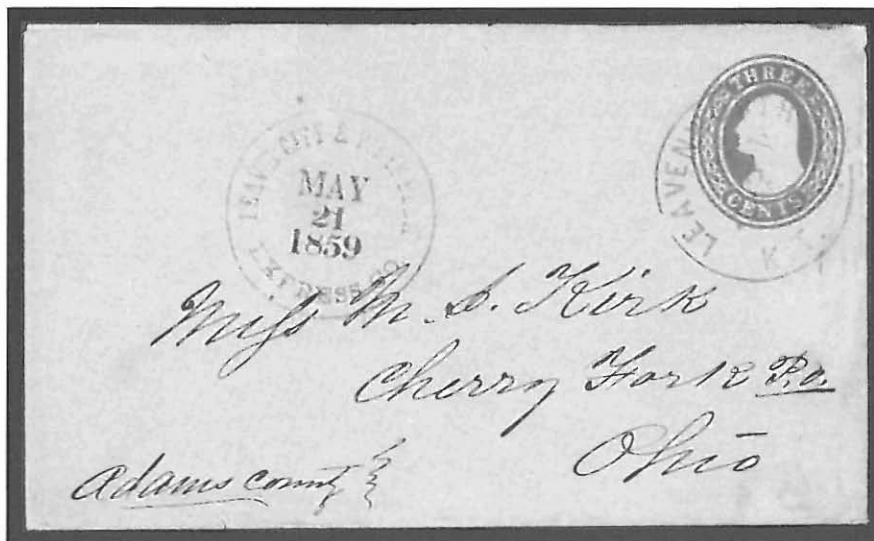 LEAV. CITY & PIKE'S PEAK
MAY
21
1859
EXPRESS CO.
THREE
CENTS
LEAVEN TH
K. T.
Miss M. S. Kirk
Cherry Fork P.O.
Ohio
Adams County